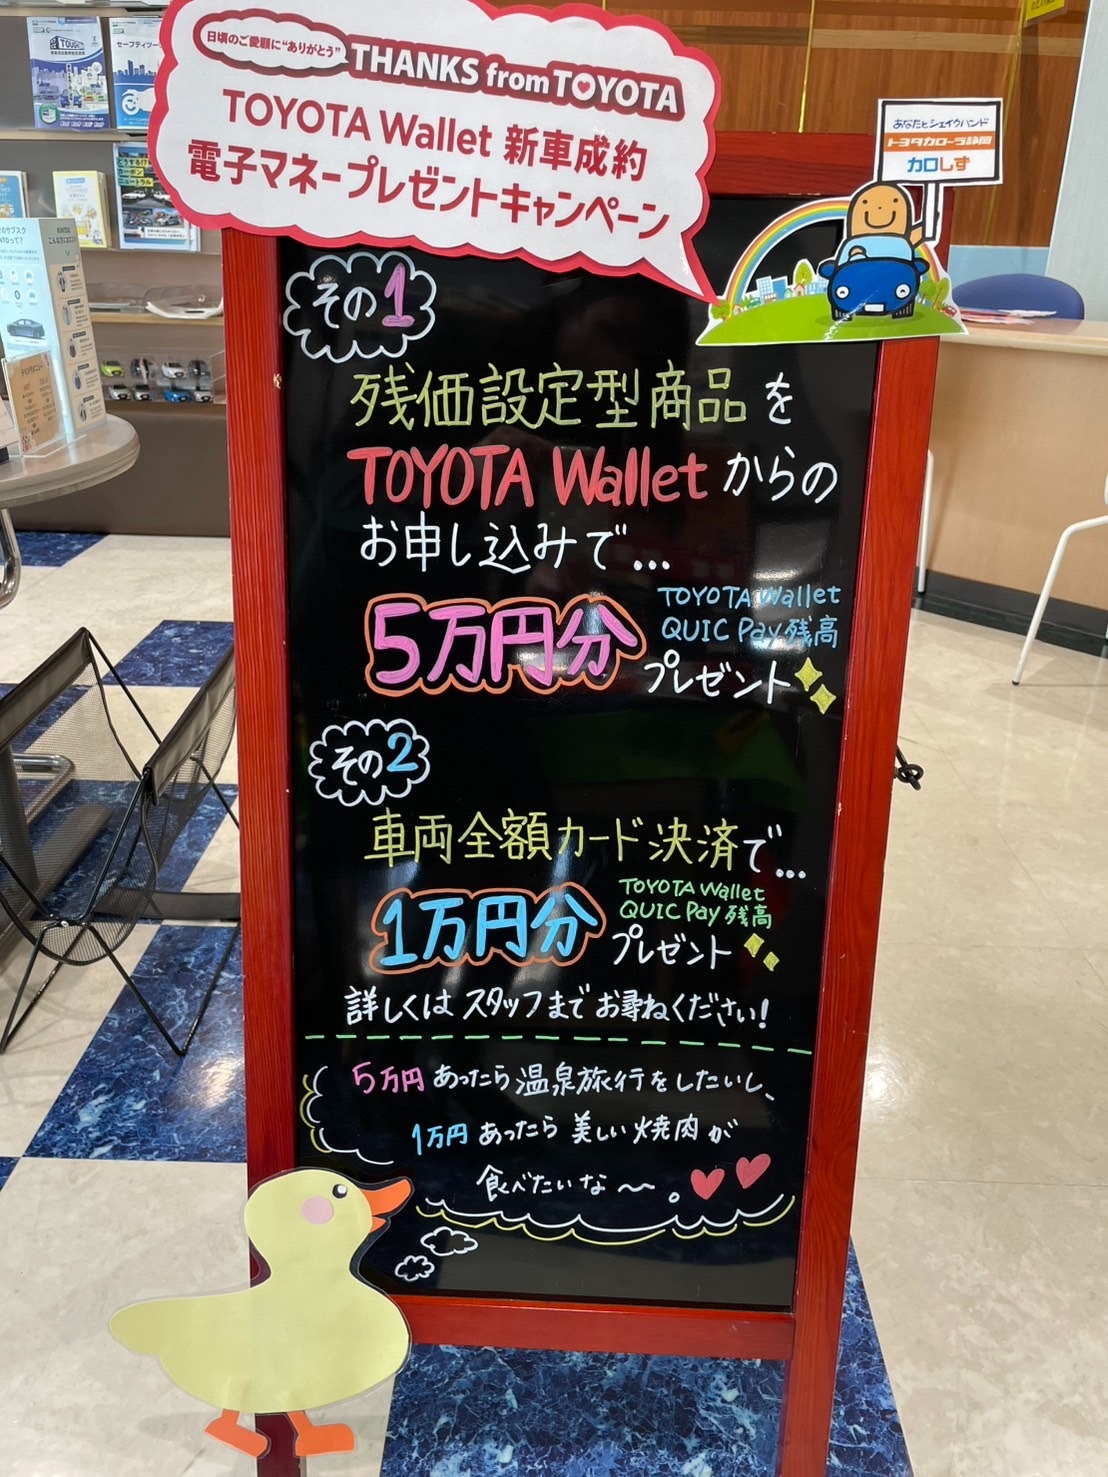 日頃のご愛顧に"ありがとう"
THANKS from TOYOTA
TOYOTA Wallet 新車成約
電子マネープレゼントキャンペーン
あなたとシェイクハンド
トヨタカローラ静岡
カロしず
その1
残価設定型商品を
TOYOTA Walletからの
お申し込みで...
5万円分
TOYOTA Wallet
QUIC Pay残高
プレゼント
その2
車両全額カード決済で...
1万円分
TOYOTA Wallet
QUIC Pay残高
プレゼント
詳しくはスタッフまでお尋ねください!
5万円あったら温泉旅行をしたいし、
1万円あったら美しい焼肉が
食べたいな〜。
TOUGH
セーフティツー
カーボン
ニュートラル